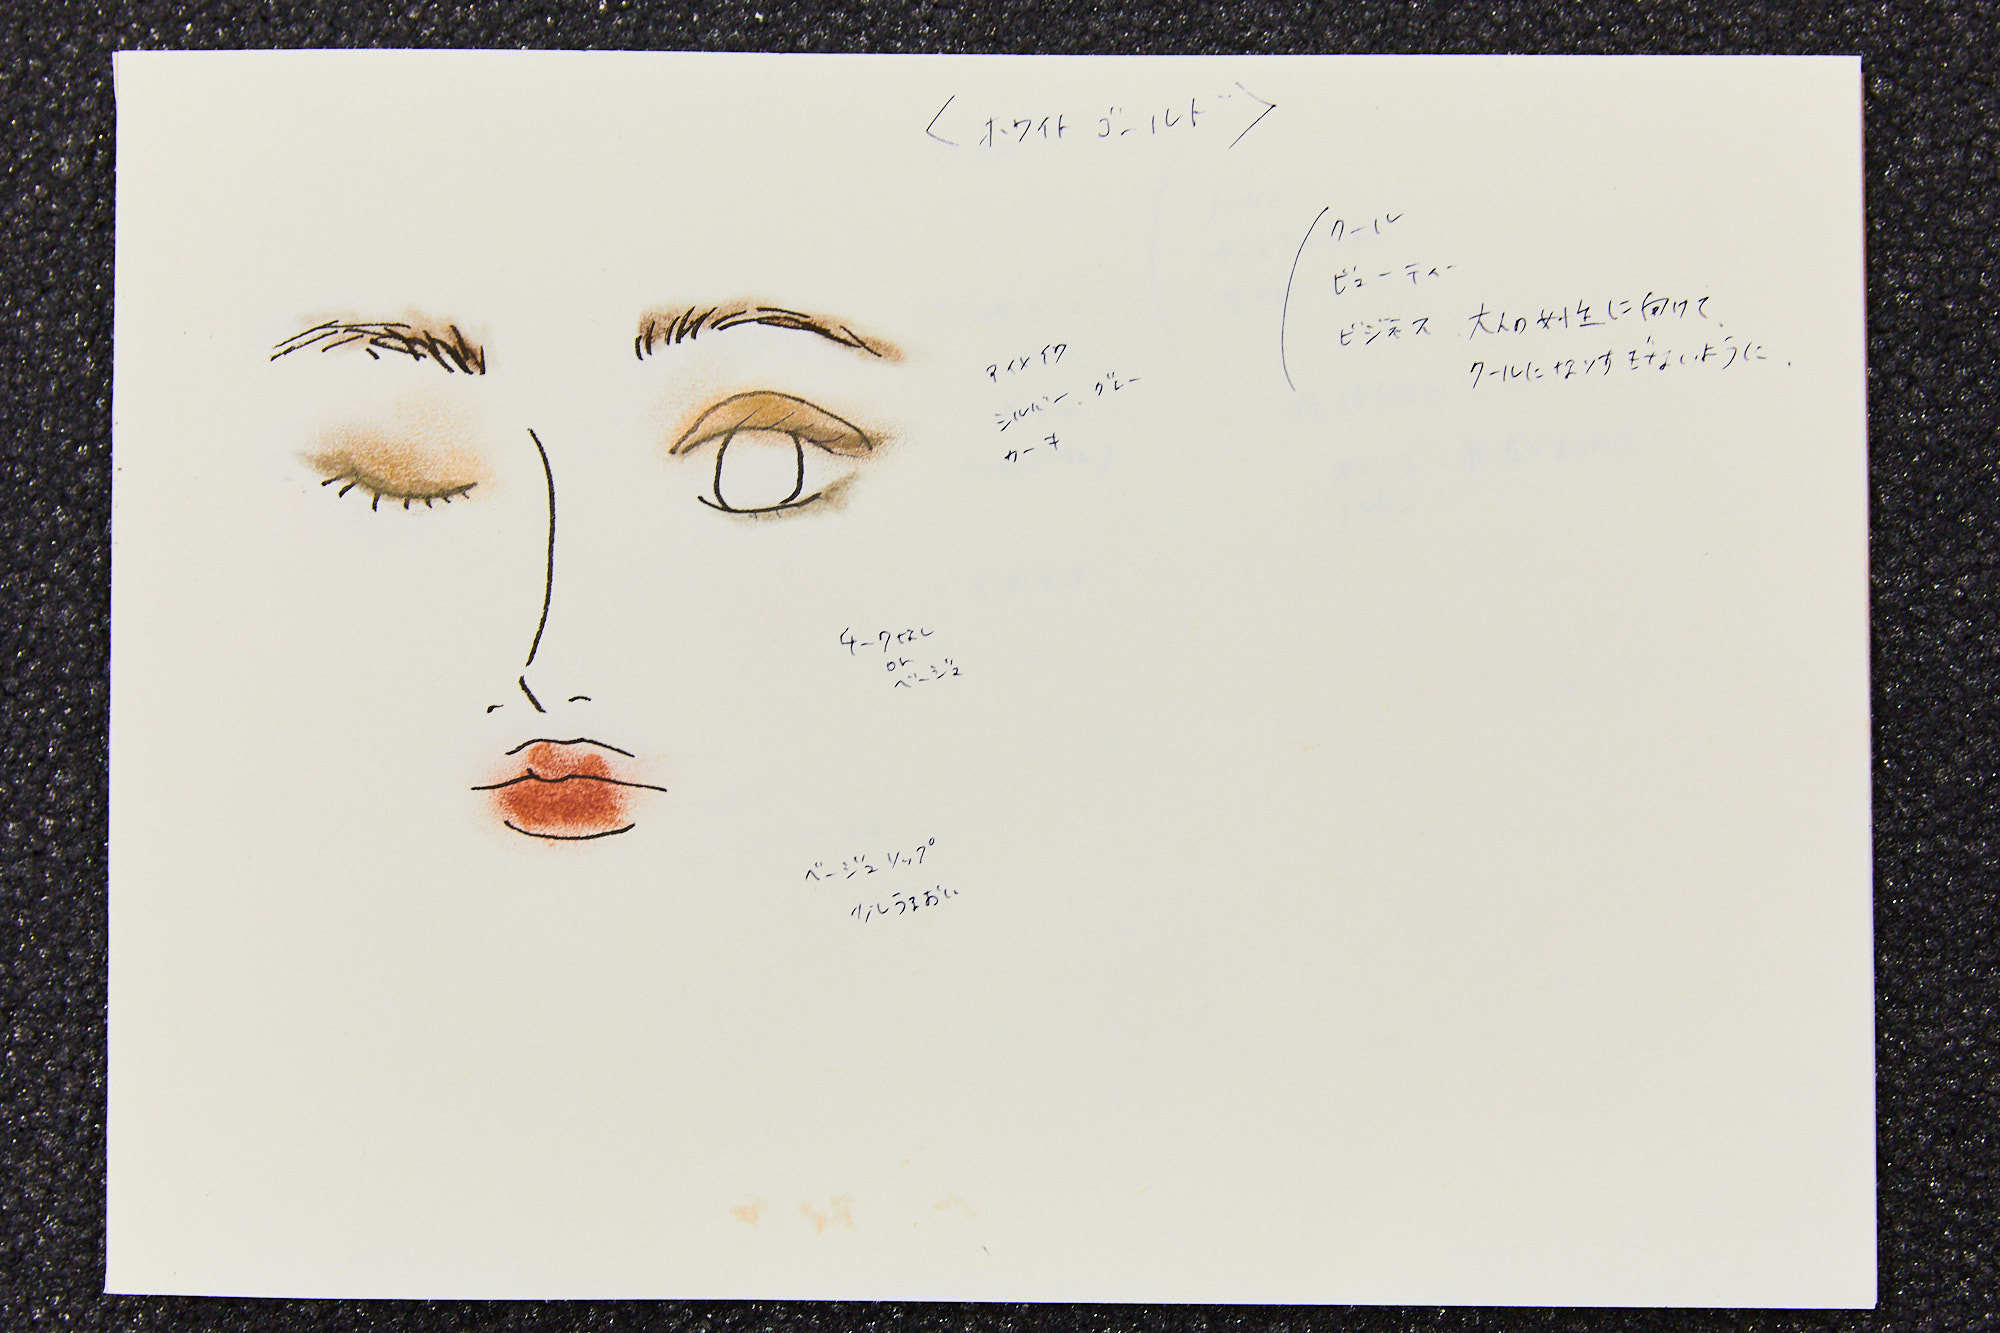 〈ホワイト ゴールド〉
クール
ビューティー
ビジネス 大人の女性に向けて、
クールになりすぎないように.
アイメイク
シルバー、グレー
カーキ
チークなし
or
ベージュ
ベージュリップ
少しうるおい